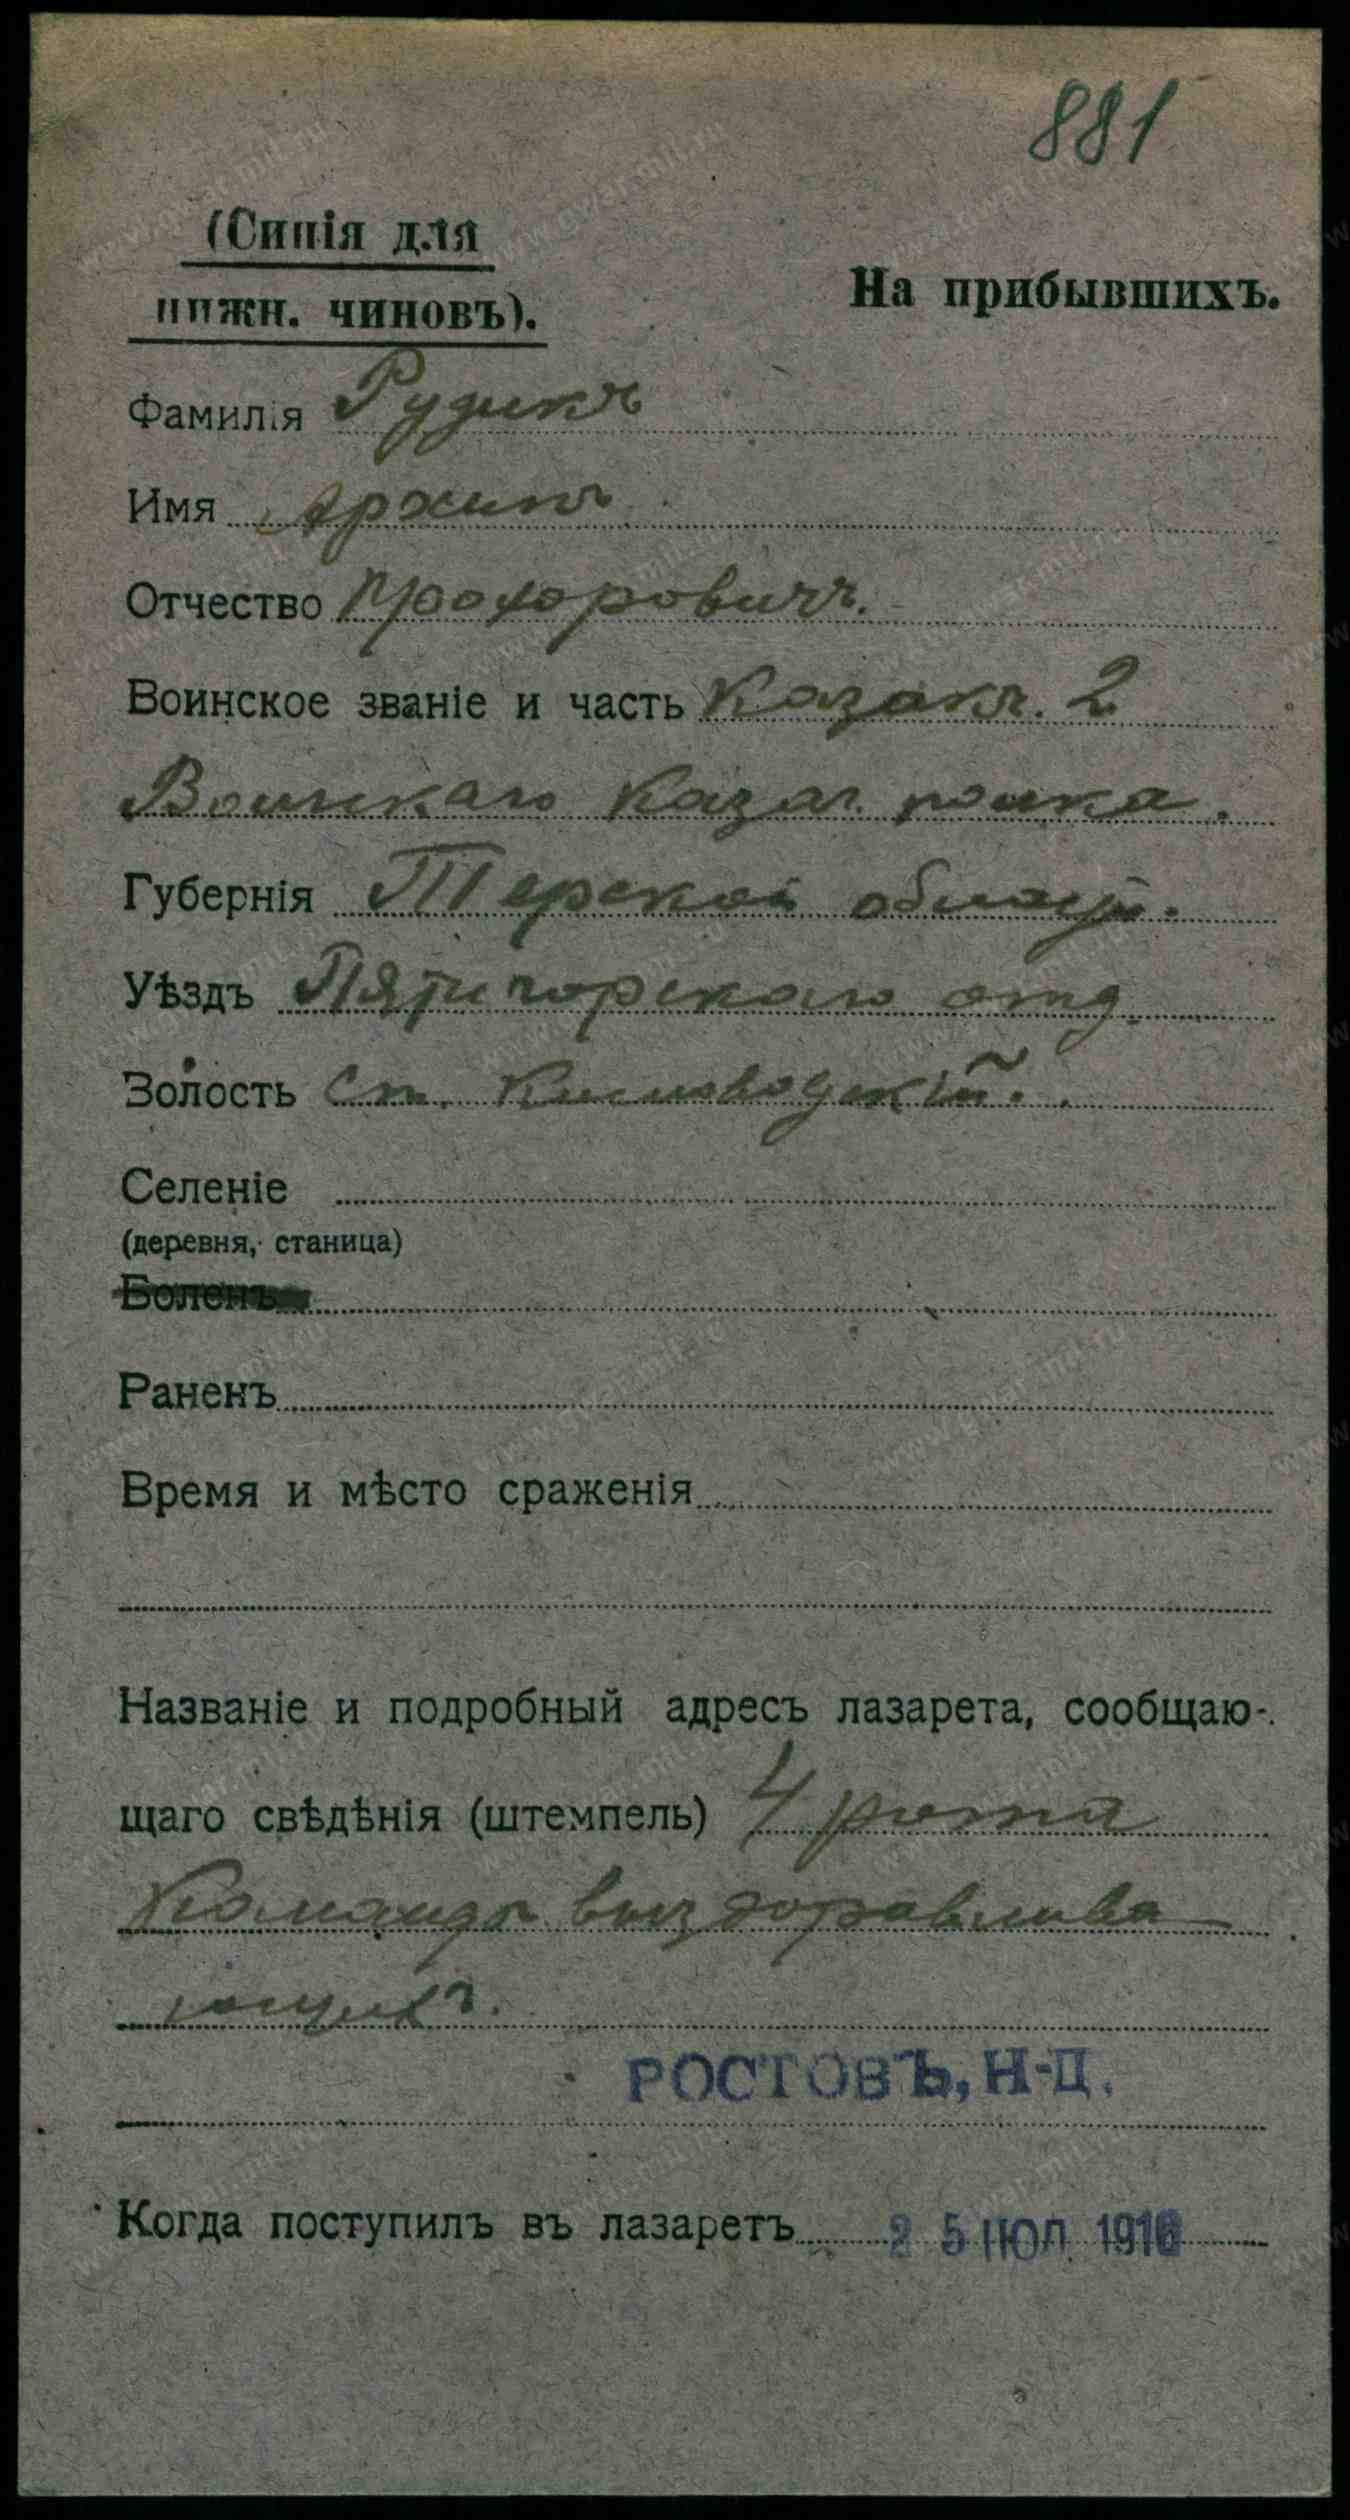 881
(Синія для
нижн. чиновъ).
На прибывшихъ.
Фамилія Рудикъ
Имя Архипъ
Отчество Прохоровичъ.
Воинское званіе и часть Казакъ. 2
казач. полка.
Губернія Терской област.
Уѣздъ Пятигорскаго отд.
Золость Ст. Кисловодской.
Селеніе
(деревня, станица)
Боленъ
Раненъ
Время и мѣсто сраженія
Названіе и подробный адресъ лазарета, сообщаю-
щаго свѣдѣнія (штемпель) 4 рота
Команды выздоравлива
ющихъ.
РОСТОВЪ, Н-Д.
Когда поступилъ въ лазаретъ 25 ІЮЛ. 1916